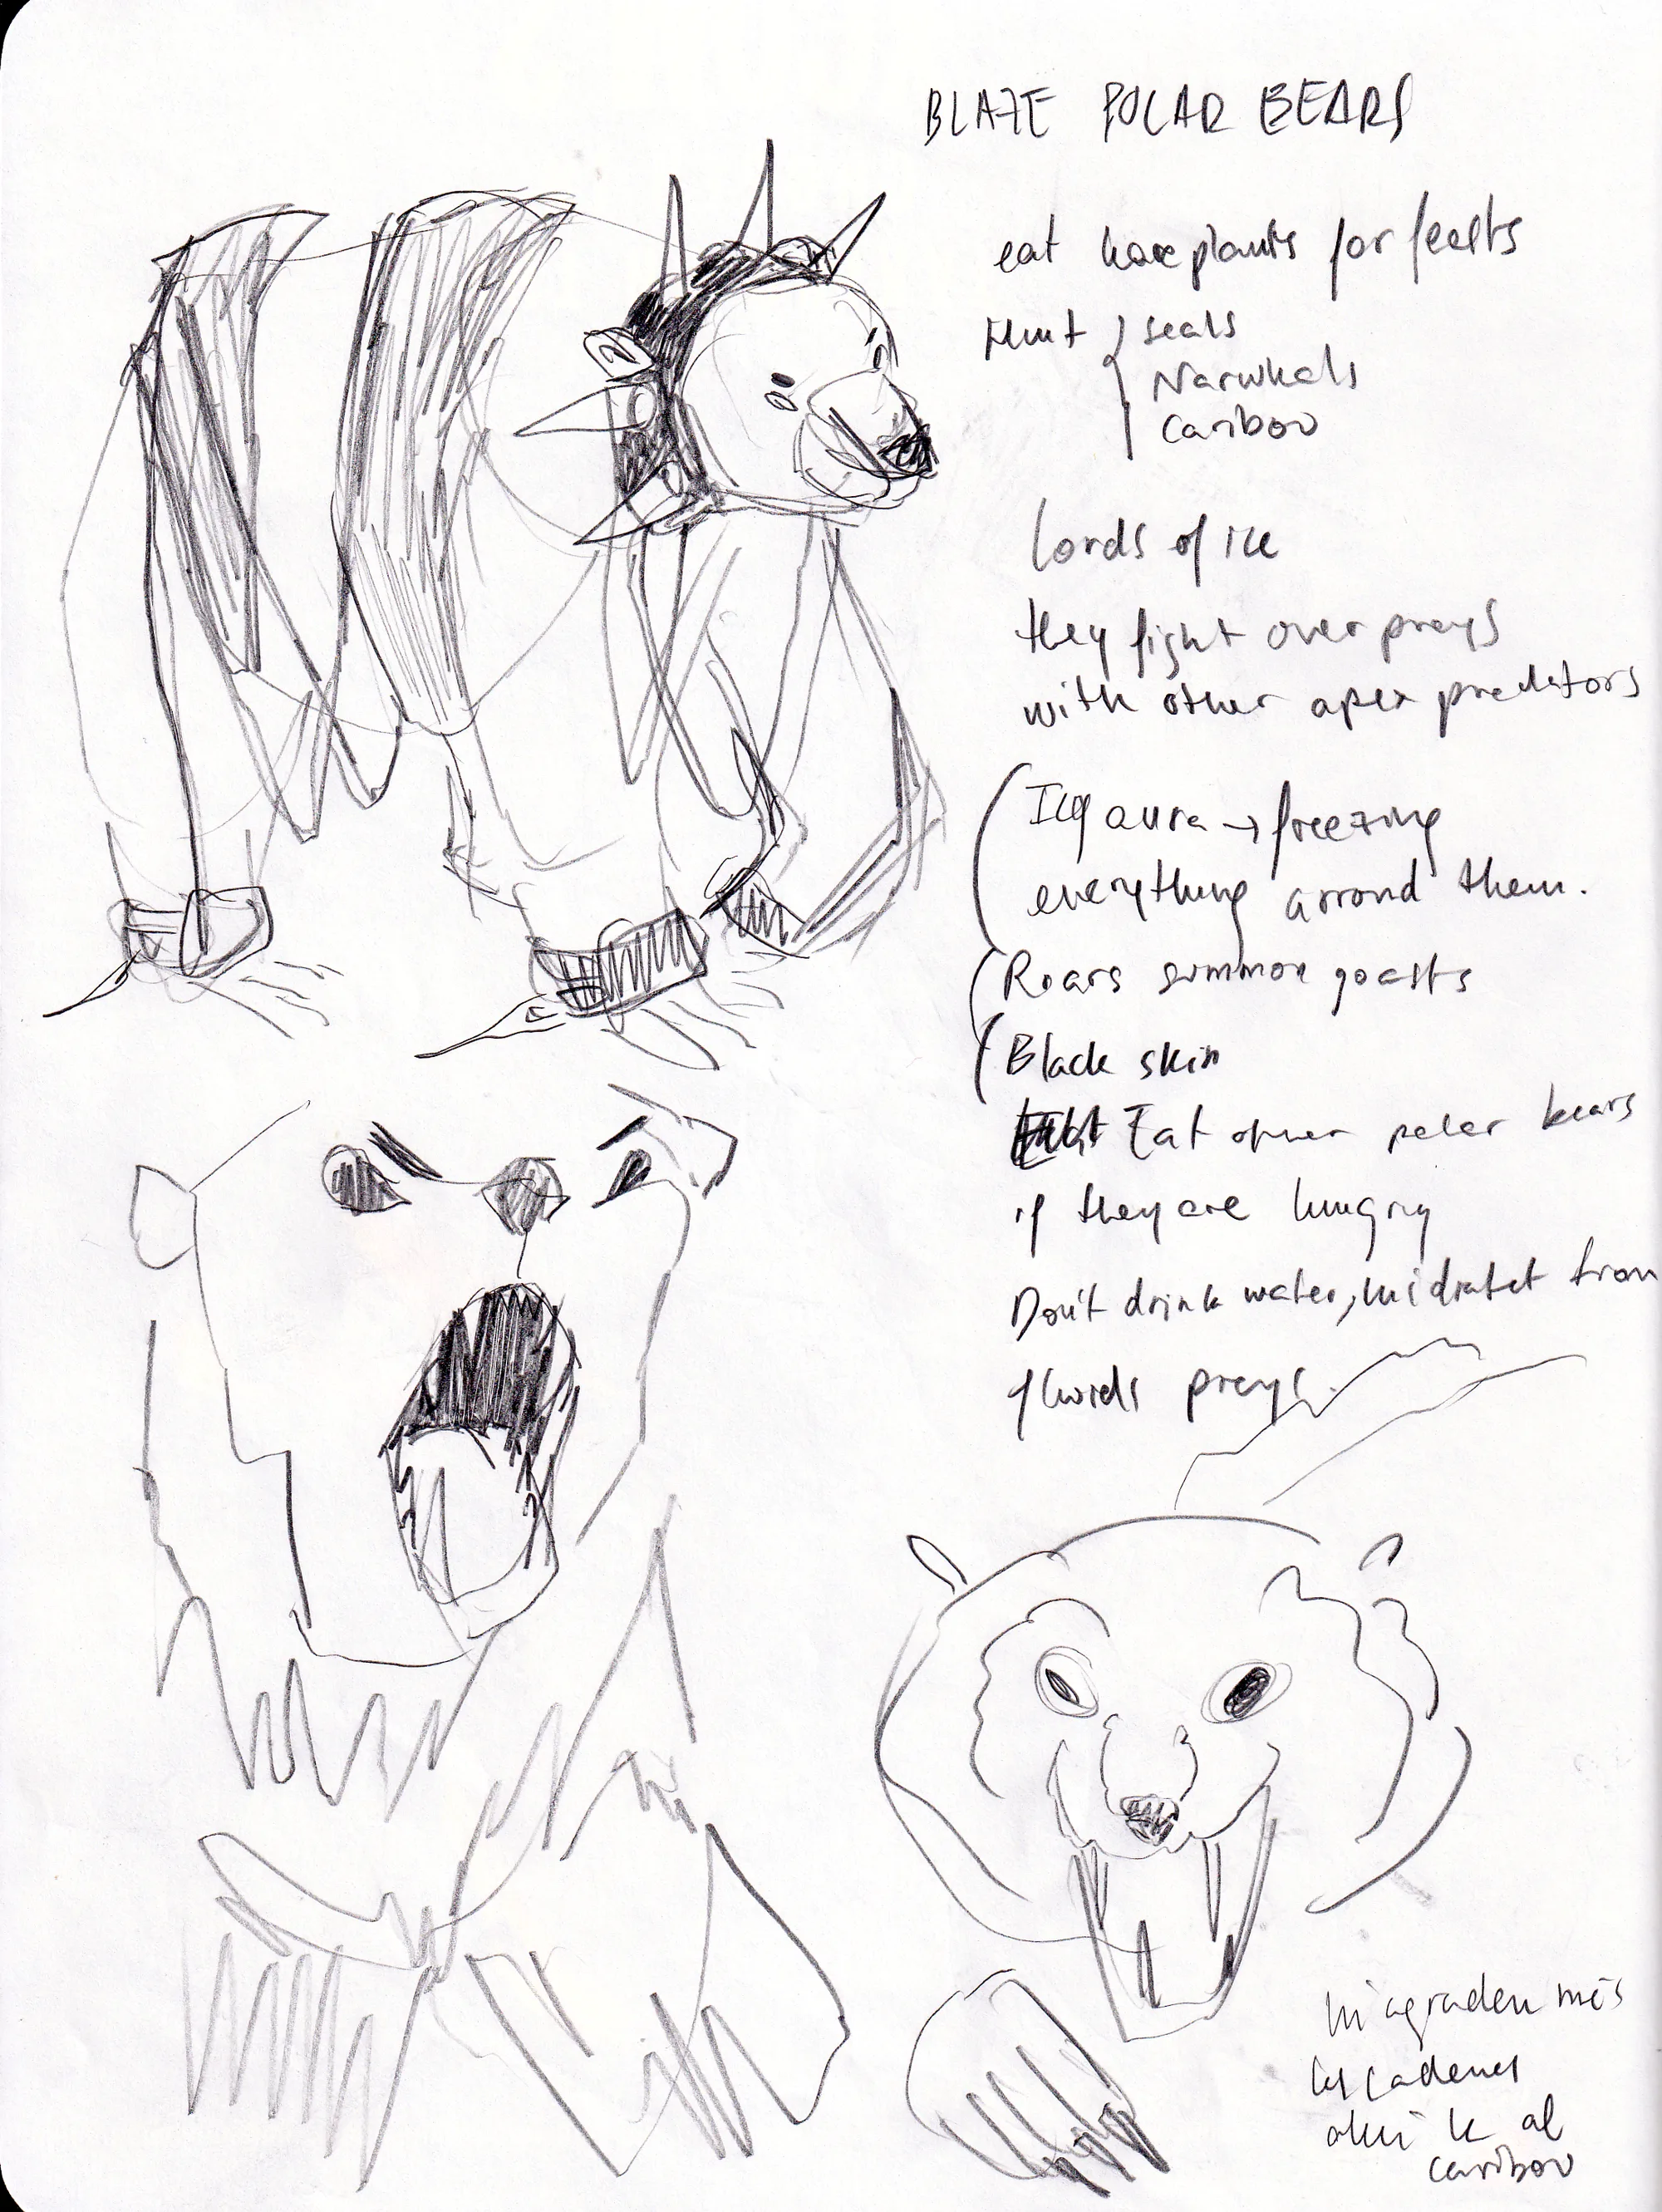 BLAZE POLAR BEARS
eat plants for feasts
Hunt seals
Narwhals
Caribou
Lords of ice
they fight over preys
with other apex predators
Icy aura → freezing
everything arrond them.
Roars summon goasts
Black skin
Eat other polar bears
if they are hungry
Don't drink water, from
fluids preys.
m'agraden més
les cadenes
al
caribou